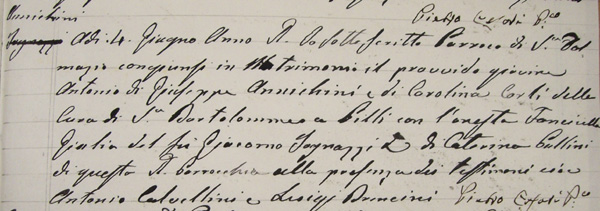 Annichini Pietro Casoli P.co
Adi 4. Giugno Anno S. Io sottoscritto Parroco di S. Dal
mazio congiunsi in Matrimonio il provvido giovine
Antonio di Giuseppe Annichini e di Carolina Corli della
Cura di S. Bartolommeo a Pilli con l'onesta Fanciulla
Giulia del fu Giacomo Sagnazzi e di Caterina Pallini
di questa Parrocchia alla presenza dei testimoni cioè
Antonio Calvellini e Luigi Brincini Pietro Casoli P.co